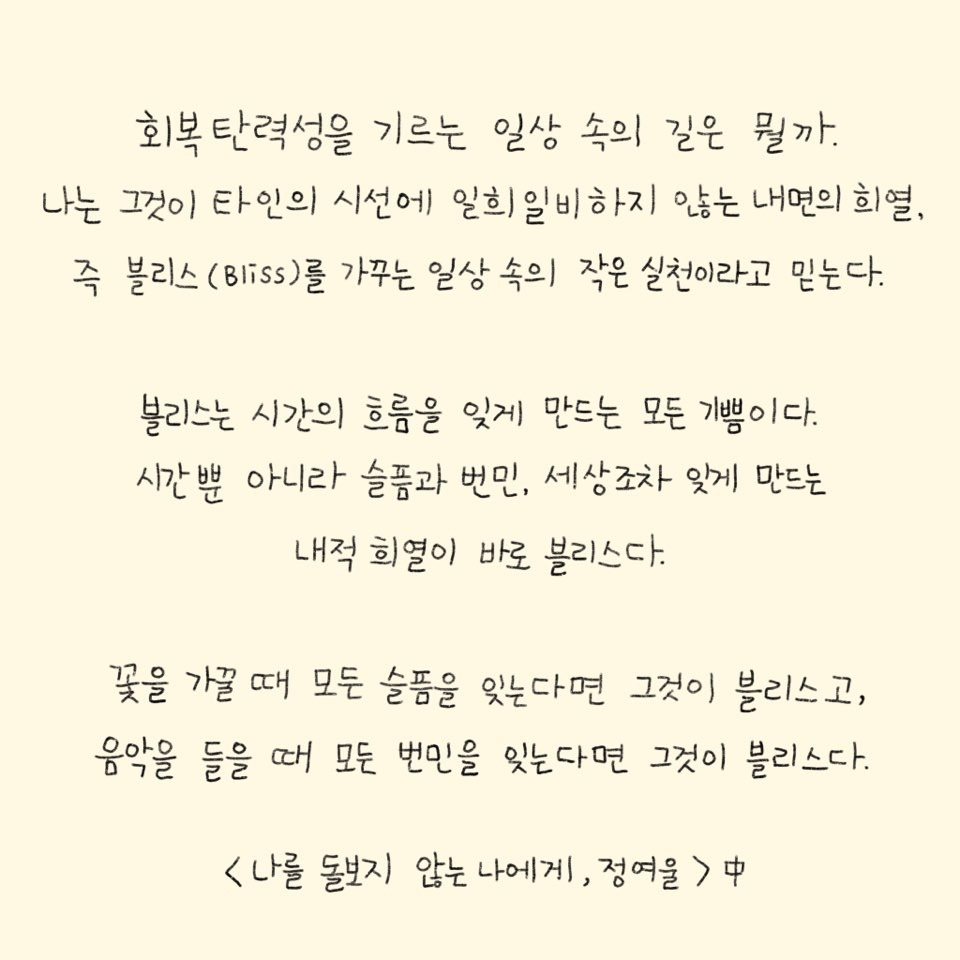 회복탄력성을 기르는 일상 속의 길은 뭘까.
나는 그것이 타인의 시선에 일희일비하지 않는 내면의 희열,
즉 블리스(Bliss)를 가꾸는 일상 속의 작은 실천이라고 믿는다.
블리스는 시간의 흐름을 잊게 만드는 모든 기쁨이다.
시간뿐 아니라 슬픔과 번민, 세상조차 잊게 만드는
내적 희열이 바로 블리스다.
꽃을 가꿀 때 모든 슬픔을 잊는다면 그것이 블리스고,
음악을 들을 때 모든 번민을 잊는다면 그것이 블리스다.
<나를 돌보지 않는 나에게, 정여울> 中